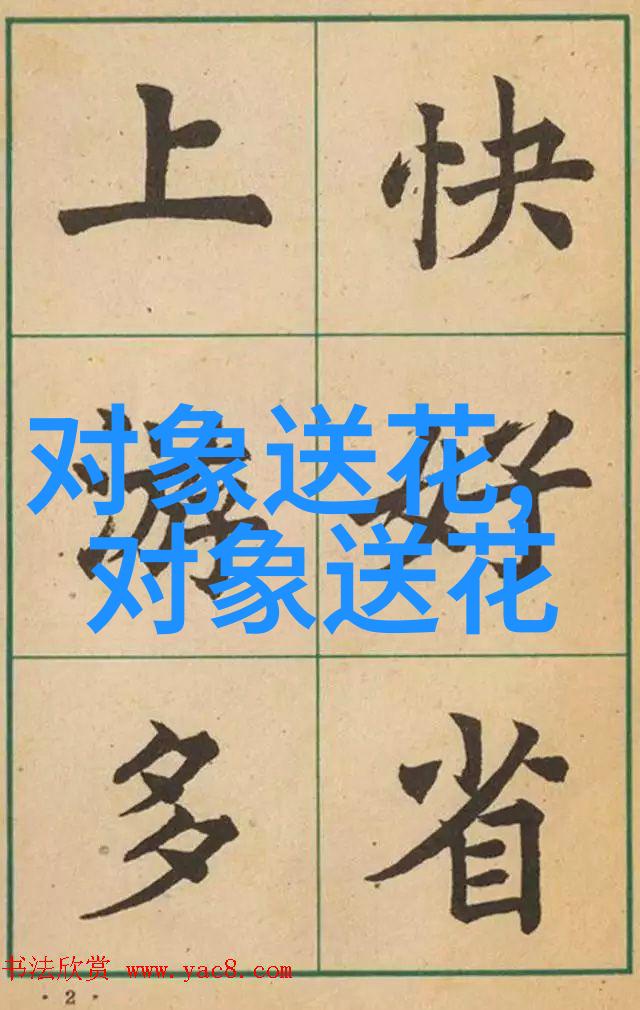 上 快
游 好
对象送花,
对象送花
多 省
书法欣赏 www.yac8.com
·2·